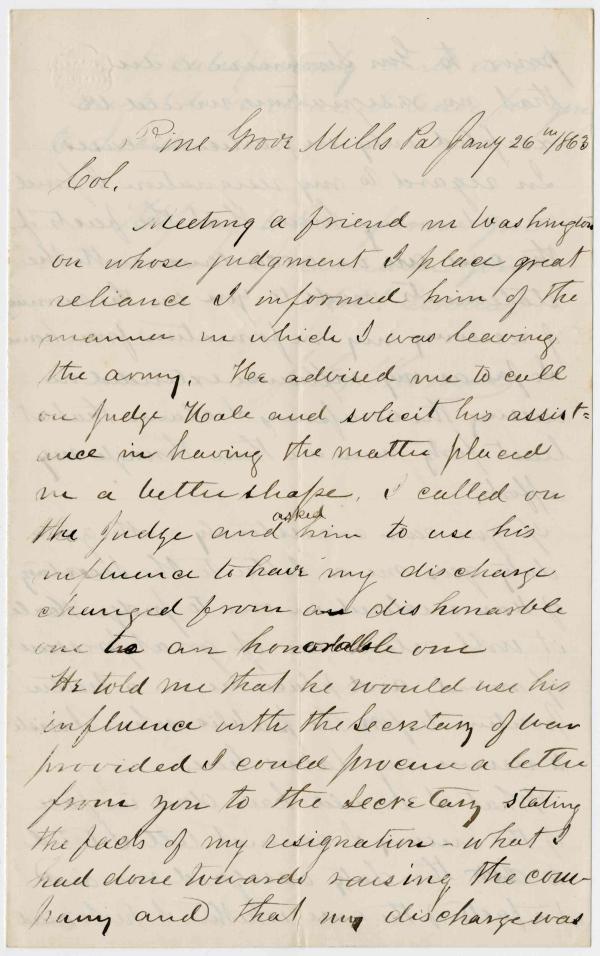 Pine Grove Mills Pa Jany 26th/1863
Col.
Meeting a friend in Washington
on whose judgment I place great
reliance I informed him of the
manner in which I was leaving
the army. He advised me to call
on Judge Hale and solicit his assist=
ance in having the matter placed
in a better shape. I called on
the Judge and asked him to use his
influence to have my discharge
changed from an dishonarable
one to an honorable one
He told me that he would use his
influence with the Secretary of War
provided I could procure a letter
from you to the Secretary stating
the facts of my resignation - what I
had done towards raising the com-
pany and that my discharge was